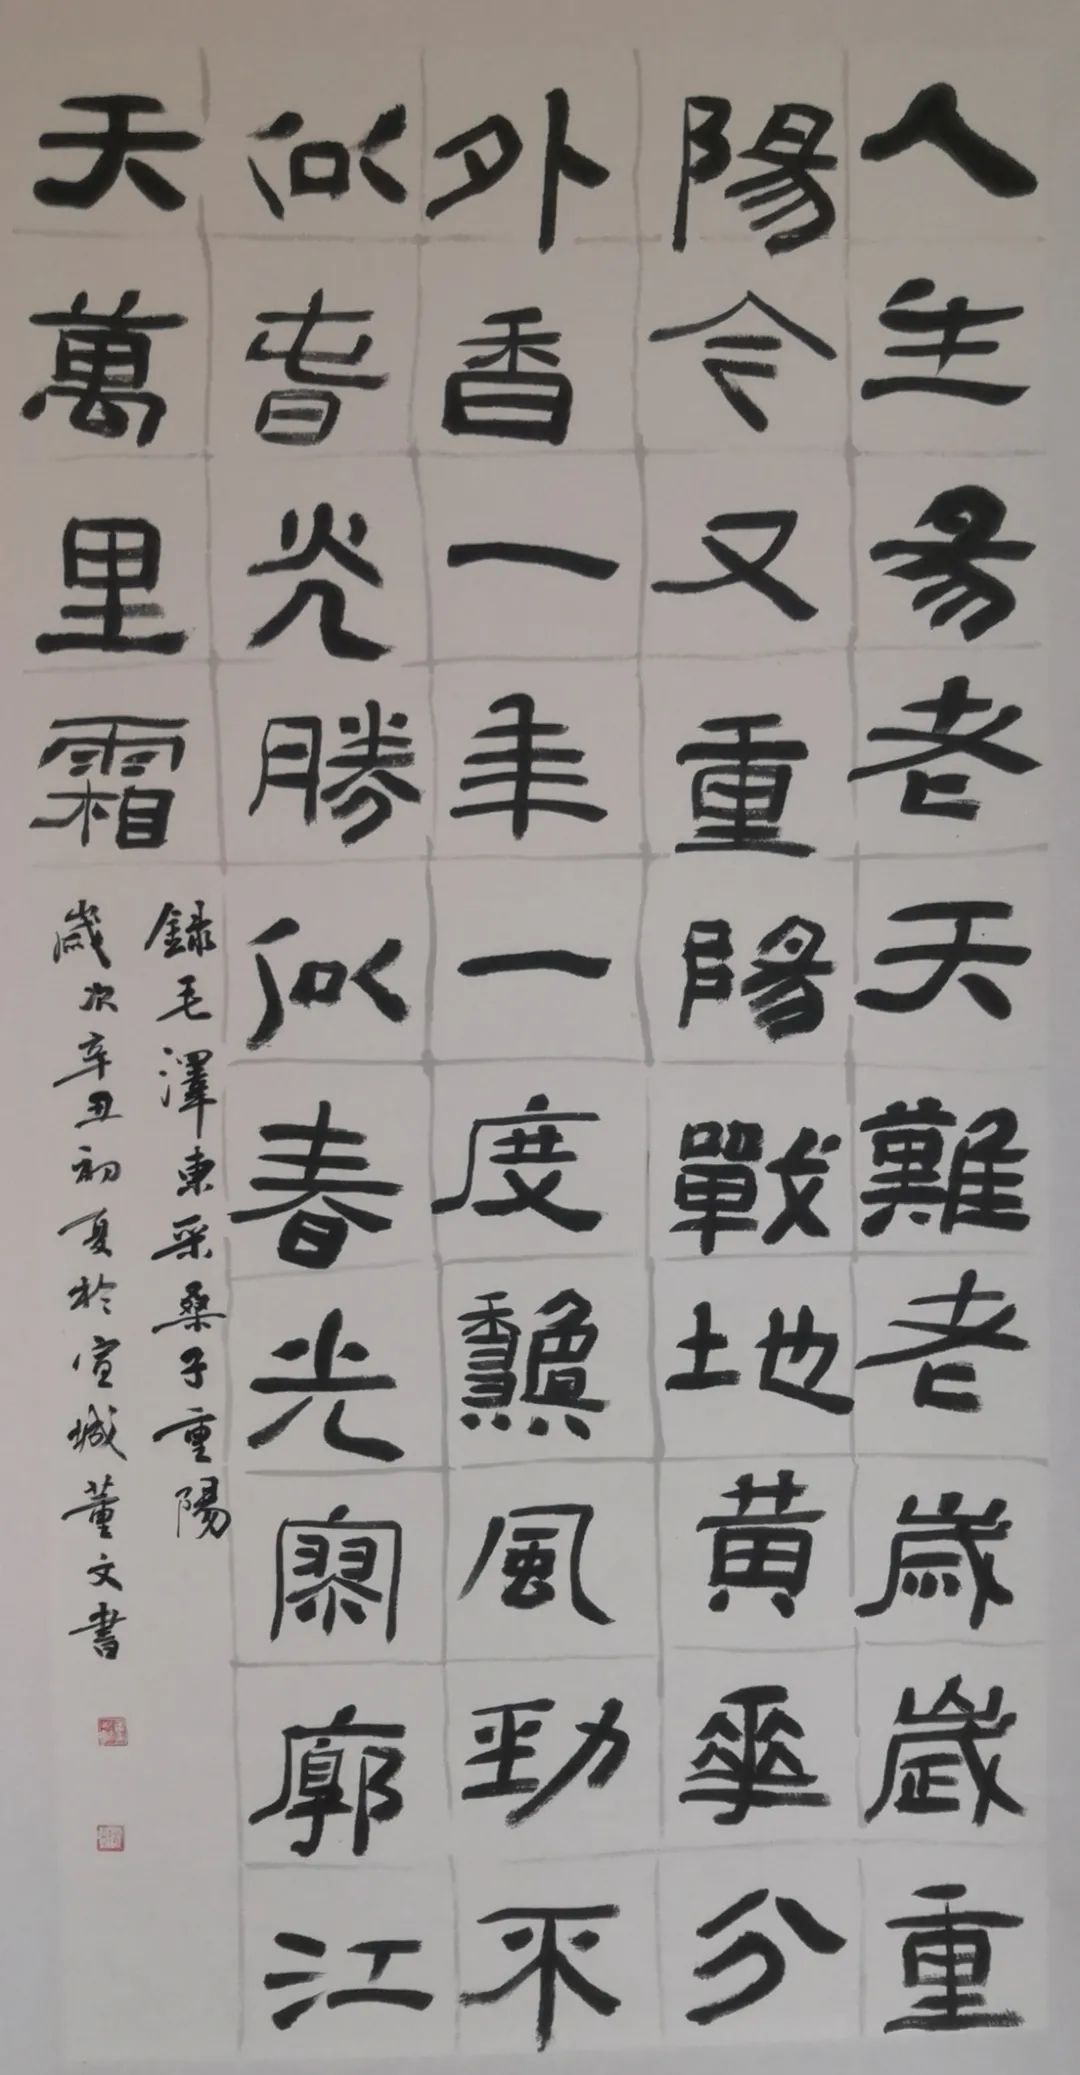 人生易老天難老歲歲重
陽今又重陽戰地黄華分
外香一年一度龝風勁不
似春光勝似春光寥廓江
天萬里霜
録毛澤東采桑子重陽
歲次辛丑初夏於宣城董文書